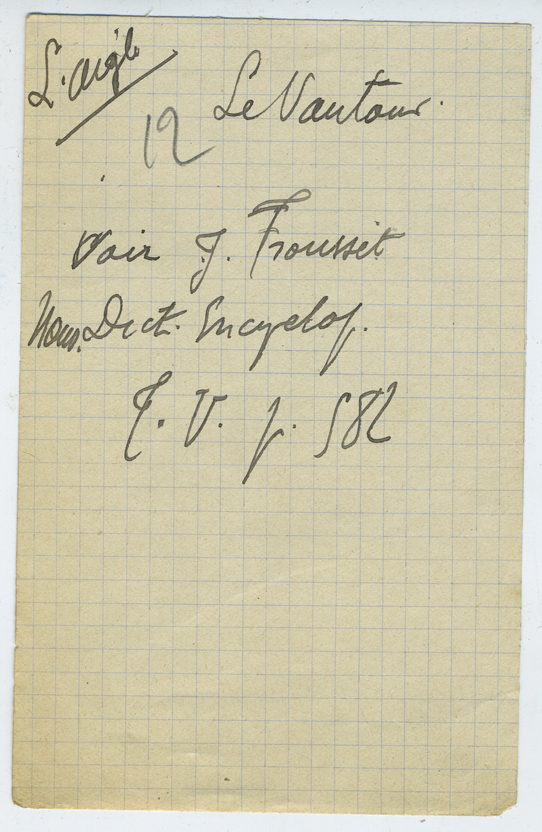 L'aigle
Le Vautour.
12
Voir J. Trousset
Nouv. Dict. Encyclop.
T. V. p. 582